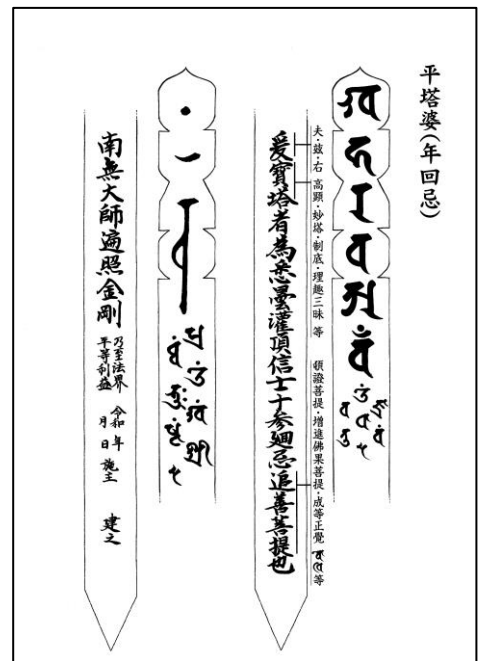 平塔婆(年回忌)
𑖏𑖮𑖨𑖪𑖀𑖪𑖽
夫・茲・右 高顕・妙塔・制底・理趣三昧 等 頓證菩提・増進佛果菩提・成等正覺 等
爰寶塔者為悉曇灌頂信士十参廻忌追善菩提也
南無大師遍照金剛
乃至法界
平等利益
令和 年
月 日 施主 建之